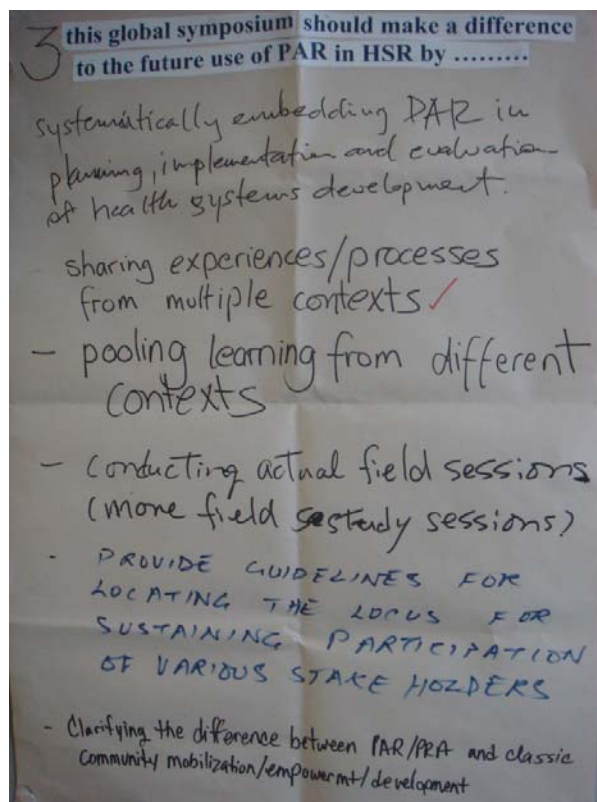 3 this global symposium should make a difference
to the future use of PAR in HSR by .........
systematically embedding PAR in
planning, implementation and evaluation
of health systems development.
sharing experiences/processes
from multiple contexts ✓
- pooling learning from different
contexts
- conducting actual field sessions
(more field study sessions)
- PROVIDE GUIDELINES FOR
LOCATING THE LOCUS FOR
SUSTAINING PARTICIPATION
OF VARIOUS STAKE HOLDERS
- Clarifying the difference between PAR/PRA and classic
Community mobilization/empowermt/development